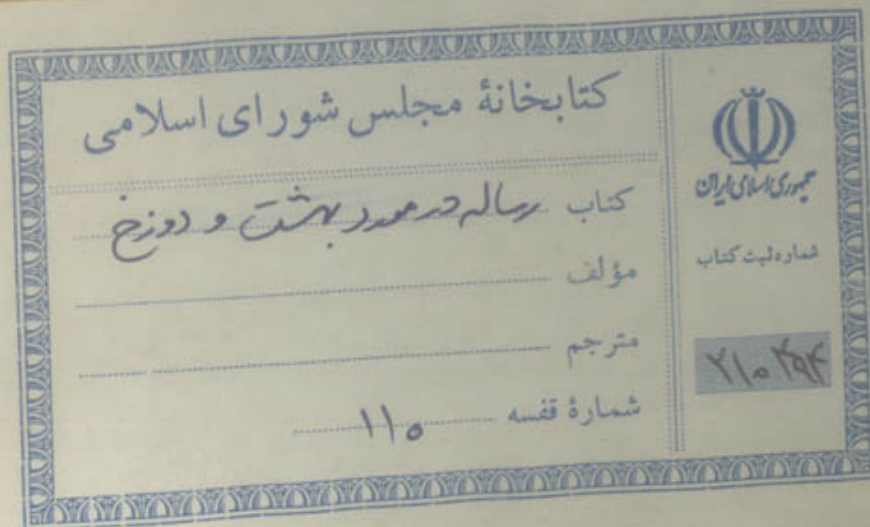 کتابخانهٔ مجلس شورای اسلامی
کتاب رساله در بهشت و دوزخ
مؤلف
مترجم
شمارهٔ قفسه ۱۱۵
جمهوری اسلامی ایران
شماره ثبت کتاب